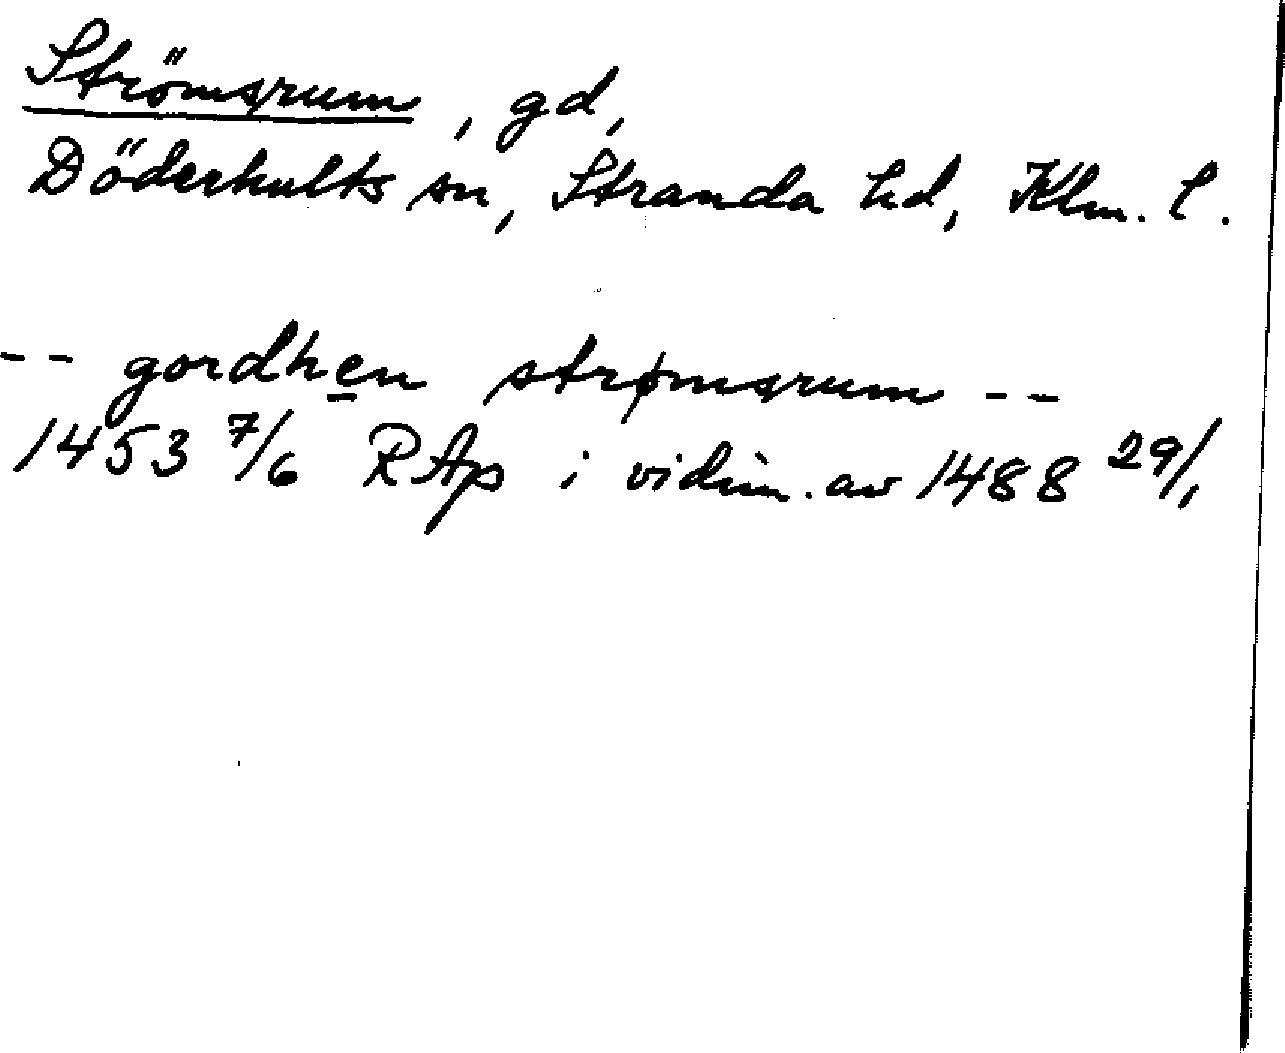 Strömsrum, gd,
Döderhults sn, Stranda hd, Klm. l.
-- gordhen strømsrum --
1453 7/6 RAp i vidim. av 1488 29/1